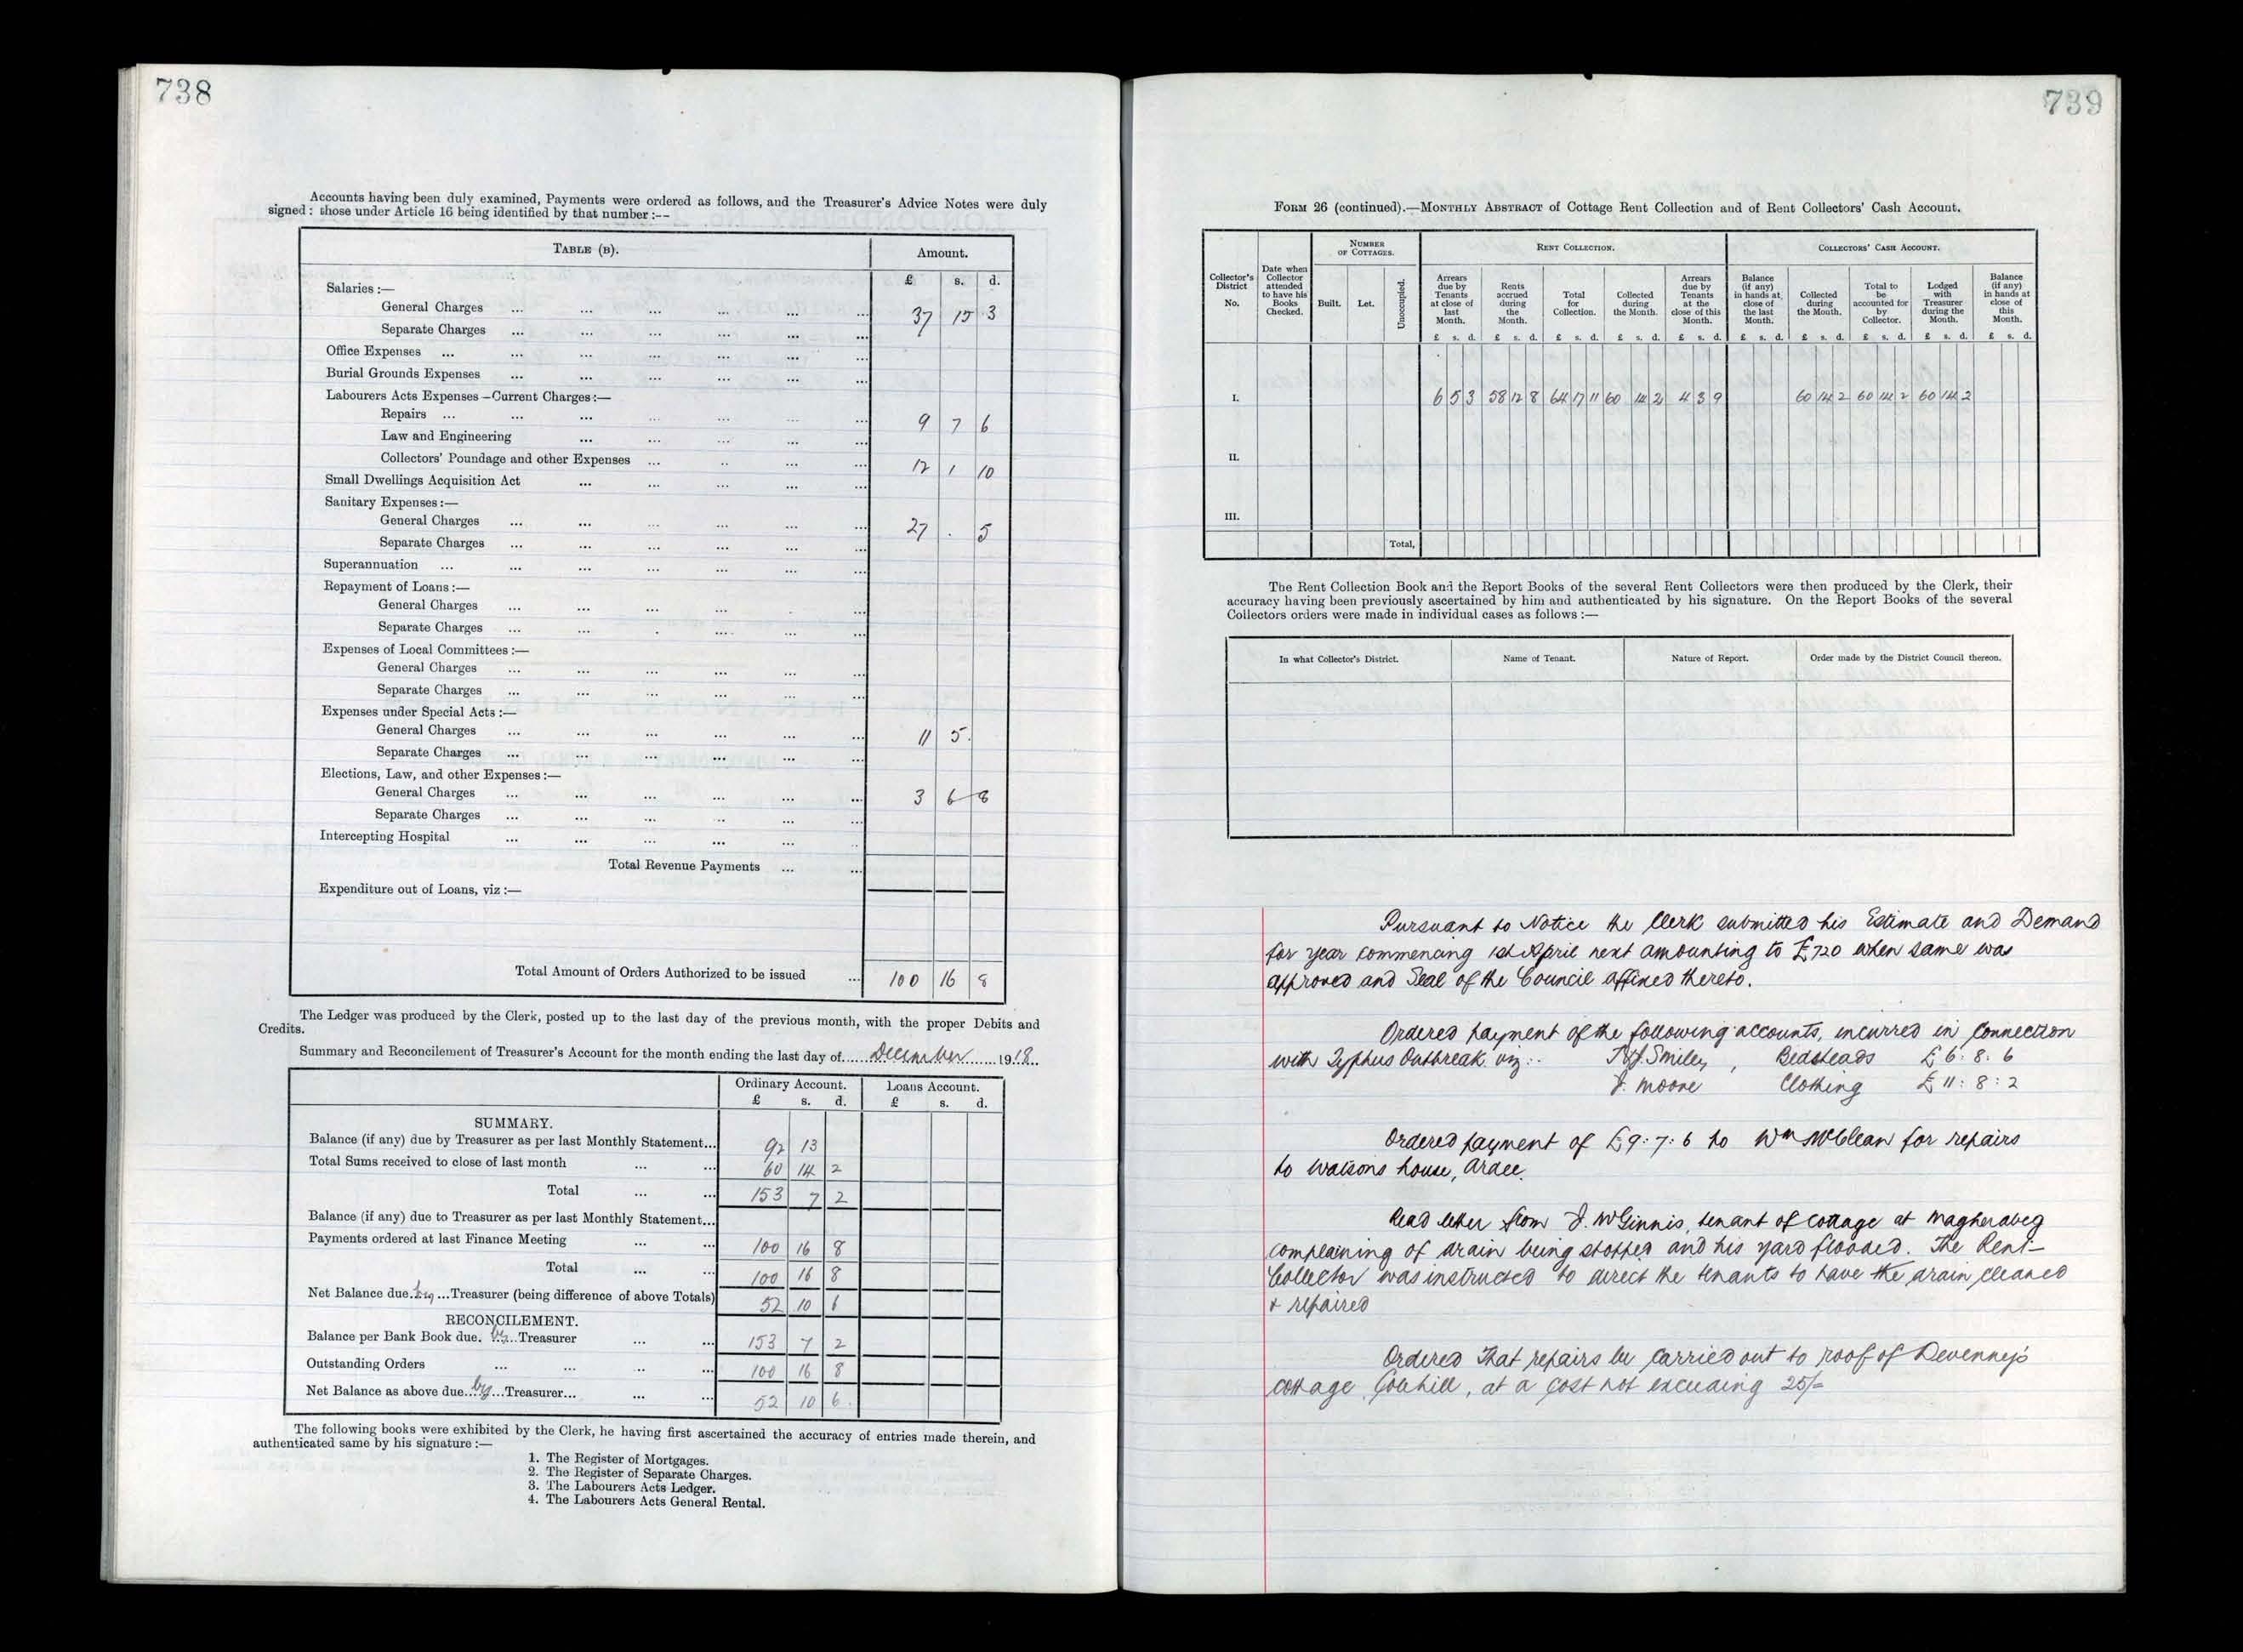 738
Accounts having been duly examined, Payments were ordered as follows, and the Treasurer's Advice Notes were duly
signed: those under Article 16 being identified by that number :--
TABLE (B). Amount.
£ s. d.
Salaries :—
General Charges ... ... ... ... ... ... 37 15 3
Separate Charges ... ... ... ... ... ...
Office Expenses ... ... ... ... ... ...
Burial Grounds Expenses ... ... ... ... ... ...
Labourers Acts Expenses—Current Charges :—
Repairs ... ... ... ... ... ... 9 7 6
Law and Engineering ... ... ... ... ...
Collectors' Poundage and other Expenses ... ... ... ... 12 1 10
Small Dwellings Acquisition Act ... ... ... ... ...
Sanitary Expenses :—
General Charges ... ... ... ... ... ... 27 . 5
Separate Charges ... ... ... ... ... ...
Superannuation ... ... ... ... ... ...
Repayment of Loans :—
General Charges ... ... ... ... ... ...
Separate Charges ... ... ... ... ... ...
Expenses of Local Committees :—
General Charges ... ... ... ... ... ...
Separate Charges ... ... ... ... ... ...
Expenses under Special Acts :—
General Charges ... ... ... ... ... ... 11 5 .
Separate Charges ... ... ... ... ... ...
Elections, Law, and other Expenses :—
General Charges ... ... ... ... ... ... 3 6 8
Separate Charges ... ... ... ... ... ...
Intercepting Hospital ... ... ... ... ... ...
Total Revenue Payments ... ...
Expenditure out of Loans, viz :—
Total Amount of Orders Authorized to be issued ... 100 16 8
The Ledger was produced by the Clerk, posted up to the last day of the previous month, with the proper Debits and
Credits.
Summary and Reconcilement of Treasurer's Account for the month ending the last day of......December......1918..
Ordinary Account. Loans Account.
£ s. d. £ s. d.
SUMMARY.
Balance (if any) due by Treasurer as per last Monthly Statement... 92 13
Total Sums received to close of last month ... ... 60 14 2
Total ... ... 153 7 2
Balance (if any) due to Treasurer as per last Monthly Statement...
Payments ordered at last Finance Meeting ... ... 100 16 8
Total ... ... 100 16 8
Net Balance due..by...Treasurer (being difference of above Totals) 52 10 6
RECONCILEMENT.
Balance per Bank Book due..by...Treasurer ... ... 153 7 2
Outstanding Orders ... ... ... ... 100 16 8
Net Balance as above due...by...Treasurer... ... ... 52 10 6
The following books were exhibited by the Clerk, he having first ascertained the accuracy of entries made therein, and
authenticated same by his signature :—
1. The Register of Mortgages.
2. The Register of Separate Charges.
3. The Labourers Acts Ledger.
4. The Labourers Acts General Rental.
739
FORM 26 (continued).—MONTHLY ABSTRACT of Cottage Rent Collection and of Rent Collectors' Cash Account.
Collector's District No. Date when Collector attended to have his Books Checked. NUMBER OF COTTAGES. RENT COLLECTION. COLLECTORS' CASH ACCOUNT.
Built. Let. Unoccupied. Arrears due by Tenants at close of last Month. Rents accrued during the Month. Total for Collection. Collected during the Month. Arrears due by Tenants at the close of this Month. Balance (if any) in hands at close of the last Month. Collected during the Month. Total to be accounted for by Collector. Lodged with Treasurer during the Month. Balance (if any) in hands at close of this Month.
£ s. d. £ s. d. £ s. d. £ s. d. £ s. d. £ s. d. £ s. d. £ s. d. £ s. d. £ s. d.
I. 6 5 3 58 12 8 64 17 11 60 14 2 4 3 9 60 14 2 60 14 2 60 14 2
II.
III.
Total,
The Rent Collection Book and the Report Books of the several Rent Collectors were then produced by the Clerk, their
accuracy having been previously ascertained by him and authenticated by his signature. On the Report Books of the several
Collectors orders were made in individual cases as follows :—
In what Collector's District. Name of Tenant. Nature of Report. Order made by the District Council thereon.
Pursuant to Notice the Clerk submitted his Estimate and Demand
for year commencing 1st April next amounting to £720 when same was
approved and Seal of the Council affixed thereto.
Ordered payment of the following accounts, incurred in connection
with Typhus Outbreak viz:- Smiley, Bedsteads £6:8:6
J. Moore Clothing £11:8:2
Ordered payment of £9:7:6 to Wm McClean for repairs
to Watsons house, Ardee.
Read letter from J. McGinnis, tenant of cottage at Magherabeg
complaining of drain being stopped and his yard flooded. The Rent-
Collector was instructed to direct the tenants to have the drain cleaned
& repaired
Ordered That repairs be carried out to roof of Devenney's
cottage, at a cost not exceeding 25/=